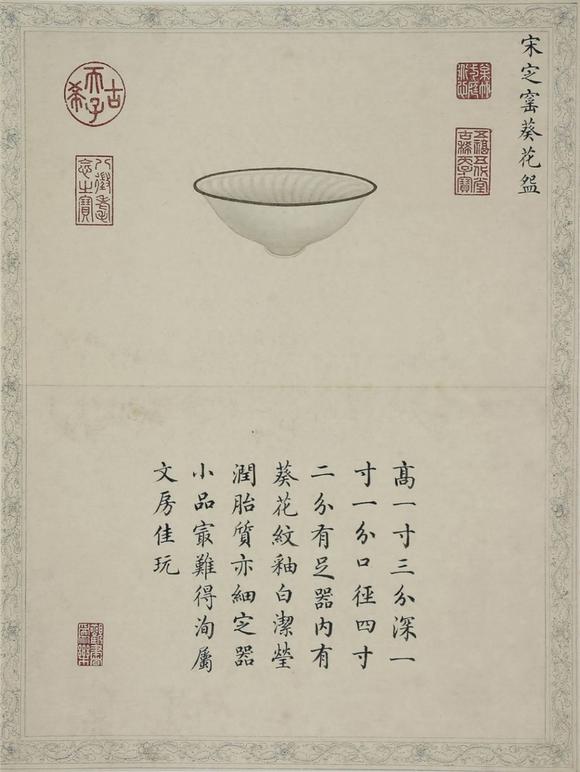 宋㝎窰葵花盌
五福五代堂
古稀天子寶
古希天子
八徵耄
念之寶
高一寸三分深一
寸一分口徑四寸
二分有足器內有
葵花紋釉白潔瑩
潤胎質亦細㝎器
小品㝡難得洵屬
文房佳玩